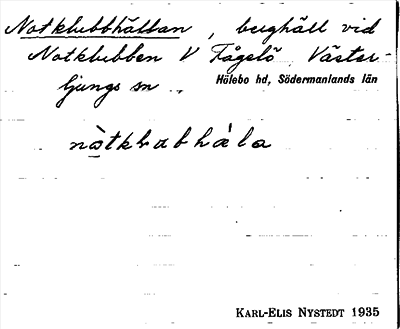 Notklubbhällan, berghäll vid
Notklubben V Fågelö, Väster-
ljungs sn .. Hölebo hd, Södermanlands län
nòtklubhäla
KARL-ELIS NYSTEDT 1935